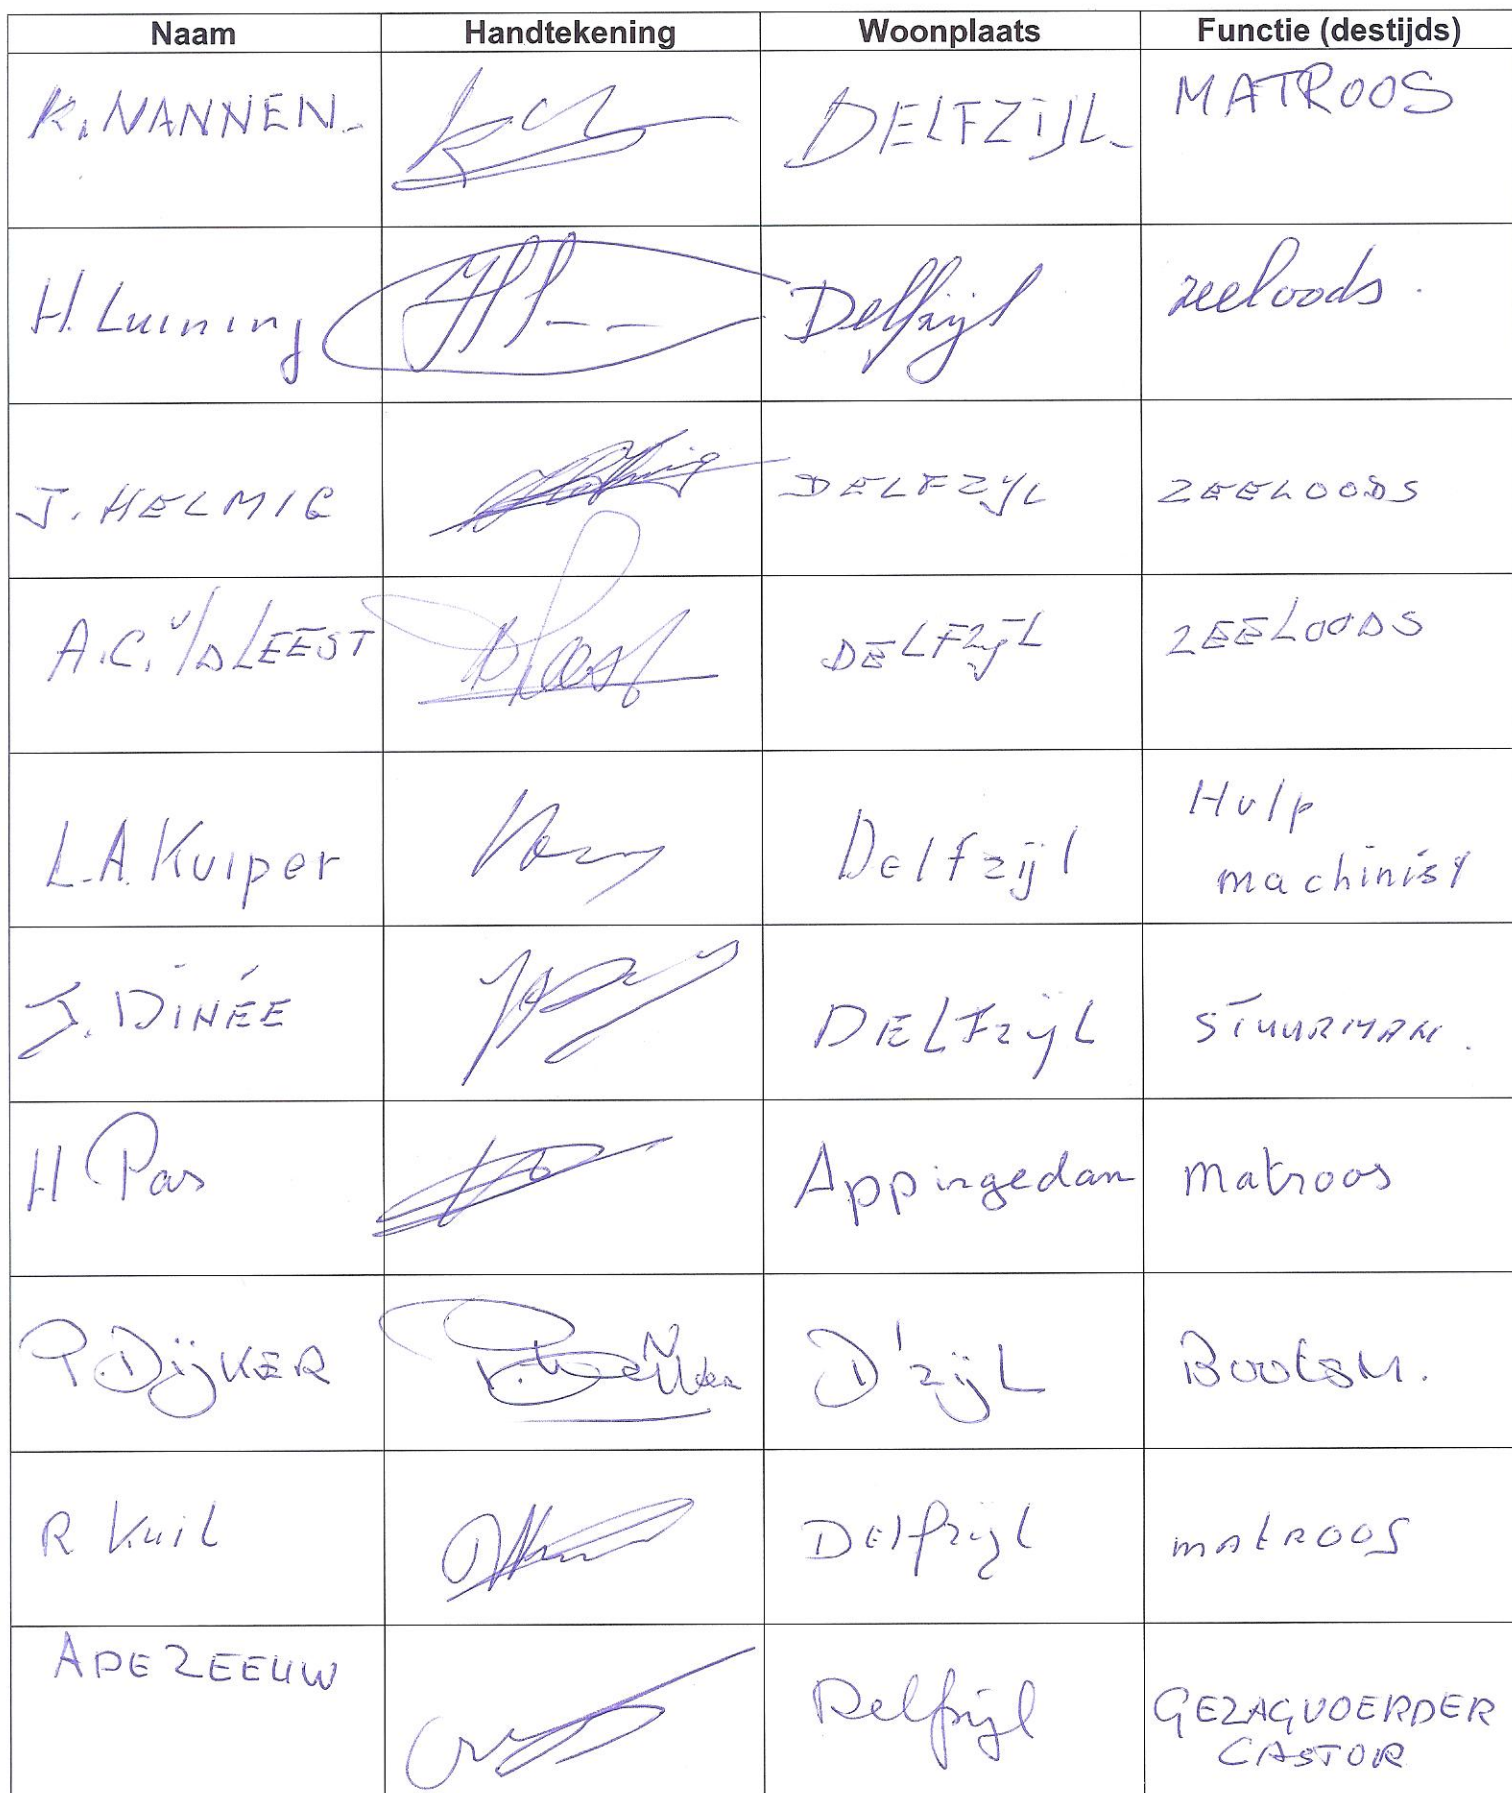 Naam Handtekening Woonplaats Functie (destijds)
K. NANNEN. DELFZIJL MATROOS
H. Luining Delfzijl zeeloods.
J. HELMIG DELFZYL ZEELOODS
A.C. v/d LEEST DELFZIJL ZEELOODS
L.A. Kuiper Delfzijl Hulp
machinist
J. DINÉE DELFZIJL STUURMAN.
H Pas Appingedam Matroos
P. DIJKER D'zijL BootsM.
R Kuil Delfzijl matroos
A DE ZEEUW Delfzijl GEZAGVOERDER
CASTOR